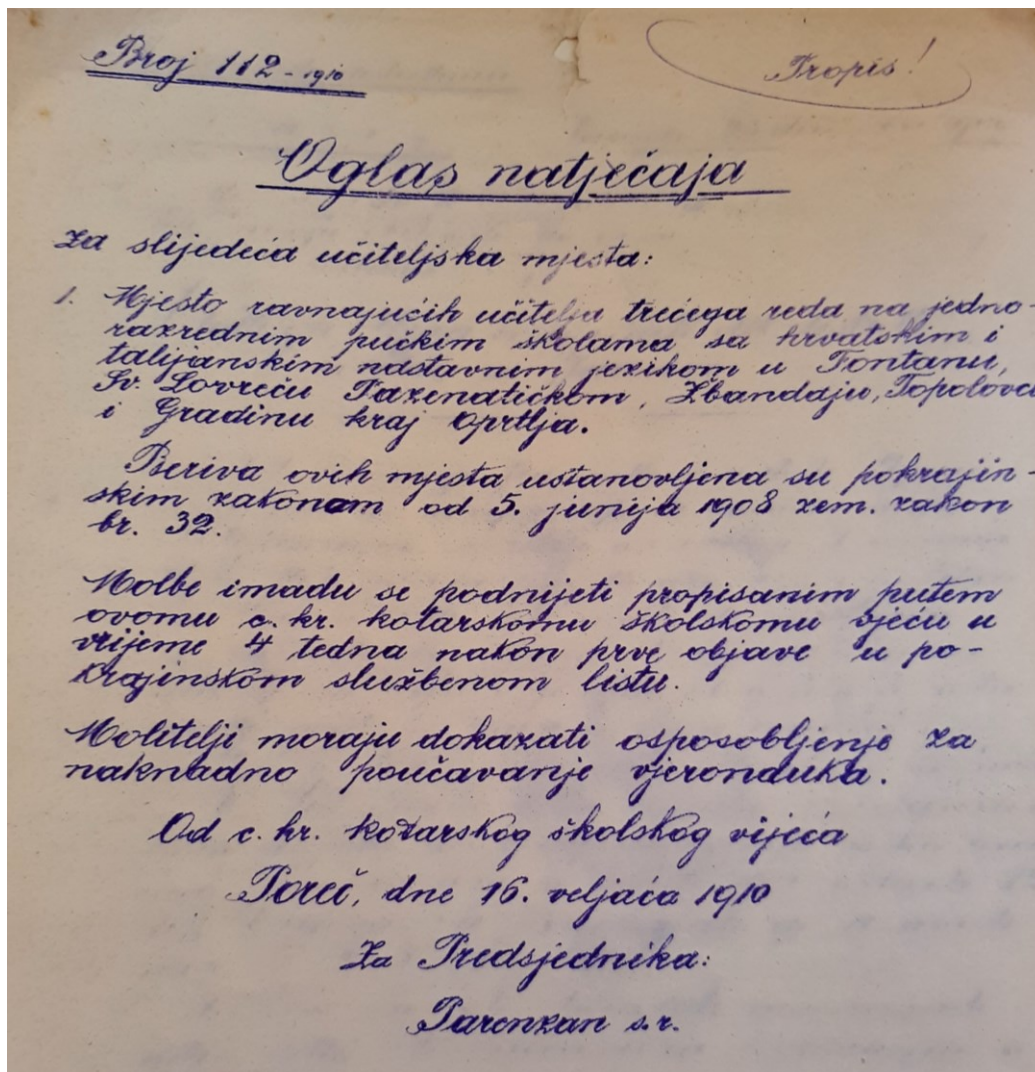 Broj 112 - 1910
Propis!
Oglas natječaja
Za slijedeća učiteljska mjesta:
1. Mjesto ravnajućih učitelja trećega reda na jedno
razrednim pučkim školama sa hrvatskim i
talijanskim nastavnim jezikom u Fontanu,
Sv. Lovreču Pazenatičkom, Žbandaju, Topolovcu
i Gradinu kraj Oprtlja.
Beriva ovih mjesta ustanovljena su pokrajin-
skim zakonom od 5. junija 1908 zem. zakon
br. 32.
Molbe imadu se podnijeti propisanim putem
ovomu c. kr. kotarskomu školskomu vjeću u
vrijeme 4 tedna nakon prve objave u po-
krajinskom službenom listu.
Molitelji moraju dokazati osposobljenje za
naknadno poučavanje vjeronauka.
Od c. kr. kotarskog školskog vijeća
Poreč, dne 16. veljača 1910
Za Predsjednika:
Parenzan s.r.